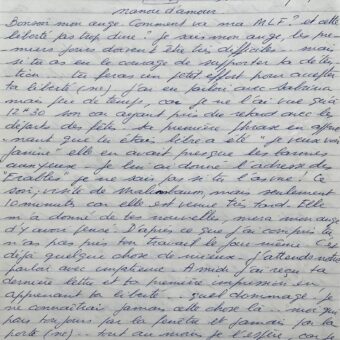 nanou d'amour
Bonsoir mon ange. Comment va ma MLF" et cette
liberté pas trop dure" je sais mon ange, les pre-
miers jours doivent être très difficiles.. mais
si tu as eu le courage de supporter ta déten-
tion tu feras un petit effort pour accepter
ta liberté (ne), j'en ai parlé avec
mais peu de temps, car je ne l'ai vue qu'à
12H30 son car ayant pris du retard avec les
départs des fêtes. Sa première phrase en appre-
nant que tu étais libre a été "je veux voir
Janine" elle en avait presque les larmes
aux yeux.. je lui ai donné l'adresse des
"Erables" je ne sais pas si tu l'as vue! Ce
soir, visite de mais seulement
10 minutes car elle est venue très tard. Elle
m'a donné de tes nouvelles, merci mon ange
d'y avoir pensé. D'après ce que j'ai compris tu
n'as pas pris ton travail le jour même. C'est
déjà quelque chose de mieux. j'attends notre
parloir avec impatience. A midi j'ai reçu ta
dernière lettre et ta première impression en
apprenant ta liberté... quel dommage je
ne connaîtrai jamais cette chose là.. moi qui
pars toujours par la fenêtre et jamais par la
porte (ne).. tout au moins je l'espère, car je